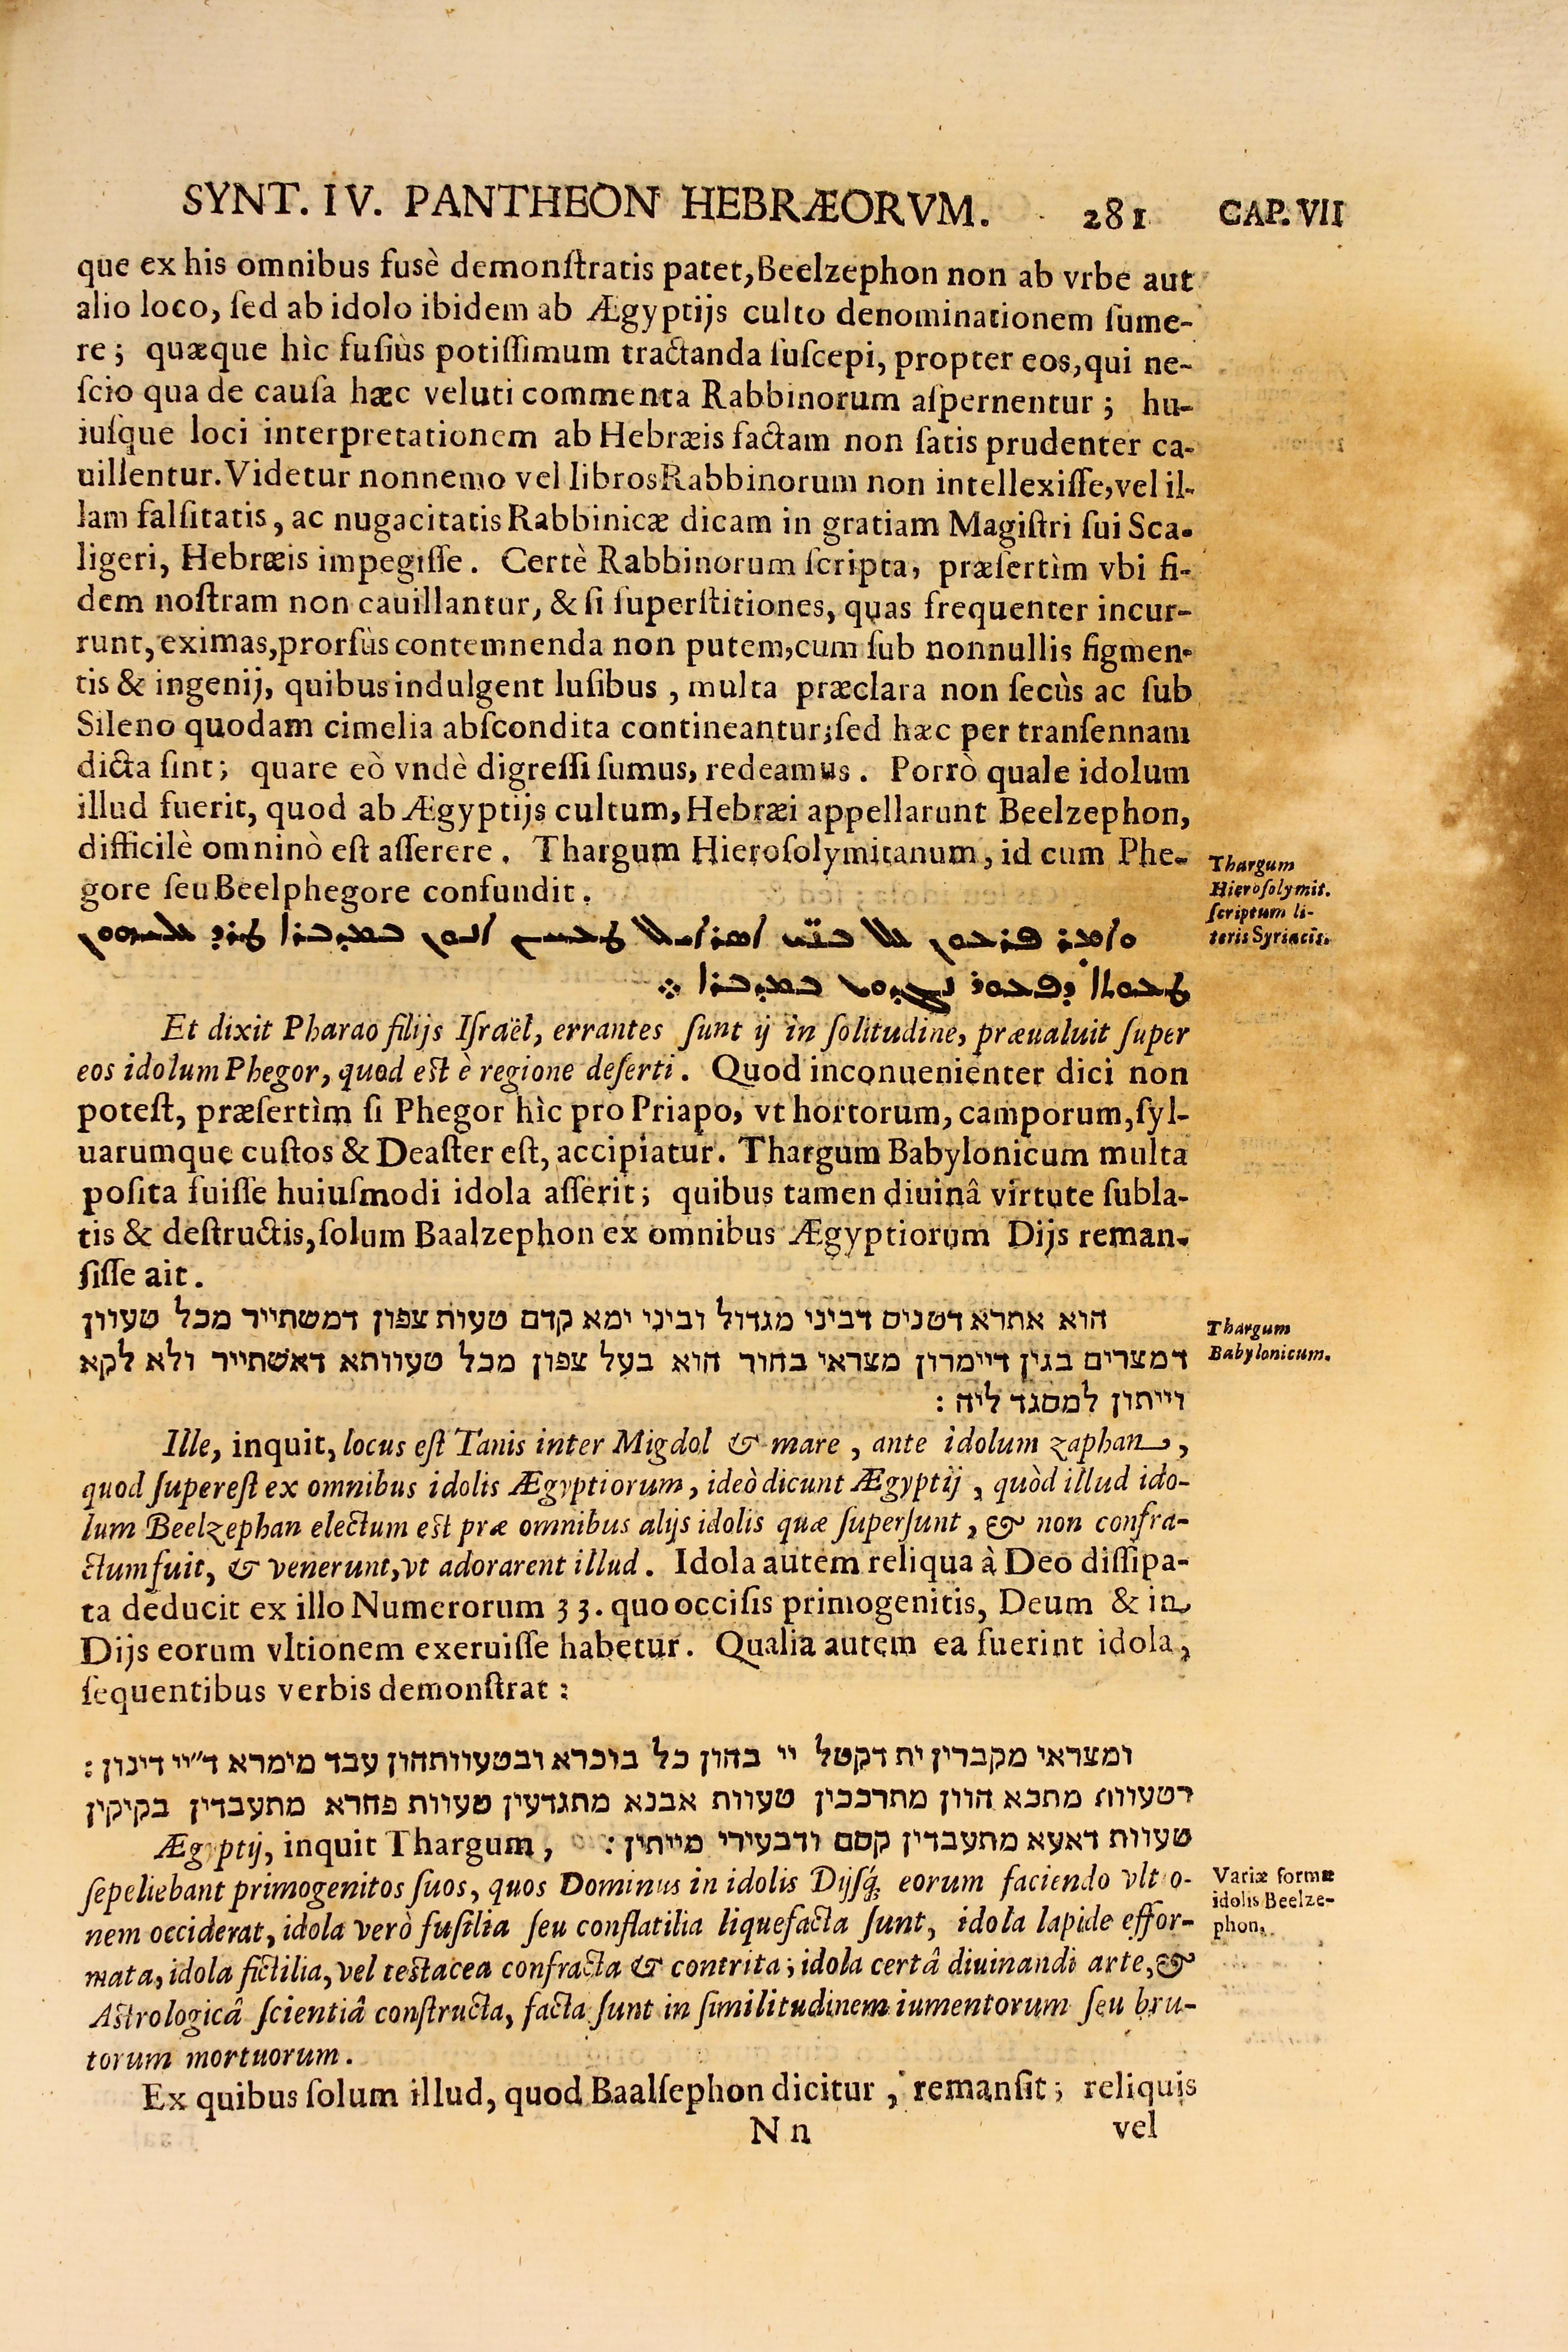 SYNT. IV. PANTHEON HEBRÆORVM. 281 CAP. VII
que ex his omnibus fusè demonſtratis patet, Beelzephon non ab vrbe aut
alio loco, ſed ab idolo ibidem ab Ægyptijs culto denominationem ſume-
re; quæque hìc fuſiùs potiſſimum tractanda ſuſcepi, propter eos, qui ne-
ſcio qua de cauſa hæc veluti commenta Rabbinorum aſpernentur; hu-
iuſque loci interpretationem ab Hebræis factam non ſatis prudenter ca-
uillentur. Videtur nonnemo vel libros Rabbinorum non intellexiſſe, vel il-
lam falſitatis, ac nugacitatis Rabbinicæ dicam in gratiam Magiſtri ſui Sca-
ligeri, Hebræis impegiſſe. Certè Rabbinorum ſcripta, præſertìm vbi fi-
dem noſtram non cauillantur, & ſi ſuperſtitiones, quas frequenter incur-
runt, eximas, prorſùs contemnenda non putem, cum ſub nonnullis figmen-
tis & ingenij, quibus indulgent luſibus, multa præclara non ſecùs ac ſub
Sileno quodam cimelia abſcondita contineantur; ſed hæc per tranſennam
dicta ſint; quare eò vndè digreſſi ſumus, redeamus. Porrò quale idolum
illud fuerit, quod ab Ægyptijs cultum, Hebræi appellarunt Beelzephon,
difficilè omninò eſt aſſerere. Thargum Hieroſolymitanum, id cum Phe-
gore ſeu Beelphegore confundit.
Thargum
Hieroſolymit.
ſcriptum li-
teris Syriacis.
ܘܐܡܪ ܦܪܥܘܢ ܥܠ ܒܢܝ̈ ܐܣܪܐܝܠ
ܛܥܘܬܐ ܕܦܥܘܪ
Et dixit Pharao filijs Iſraël, errantes ſunt ij in ſolitudine, præualuit ſuper
eos idolum Phegor, quod eſt è regione deſerti. Quod inconuenienter dici non
poteſt, præſertìm ſi Phegor hìc pro Priapo, vt hortorum, camporum, ſyl-
uarumque cuſtos & Deaſter eſt, accipiatur. Thargum Babylonicum multa
poſita fuiſſe huiuſmodi idola aſſerit; quibus tamen diuinâ virtute ſubla-
tis & deſtructis, ſolum Baalzephon ex omnibus Ægyptiorum Dijs reman-
ſiſſe ait.
Thargum
Babylonicum.
הוא אתרא דטניס דביני מגדול וביני ימא קדם טעות צפון דמשתייר מכל טעוון
דמצרים בגין דיימרון מצראי בחור הוא בעל צפון מכל טעוותא דאשתייר ולא לקא
וייתון למסגד ליה :
Ille, inquit, locus eſt Tanis inter Migdol & mare, ante idolum zaphan,
quod ſupereſt ex omnibus idolis Ægyptiorum, ideò dicunt Ægyptij, quòd illud ido-
lum Beelzephan electum eſt præ omnibus alijs idolis quæ ſuperſunt, & non confra-
ctum fuit, & venerunt, vt adorarent illud. Idola autem reliqua à Deo diſſipa-
ta deducit ex illo Numerorum 33. quo occiſis primogenitis, Deum & in
Dijs eorum vltionem exeruiſſe habetur. Qualia autem ea fuerint idola,
ſequentibus verbis demonſtrat:
ומצראי מקברין ית דקטל יי בהון כל בוכרא ובטעוותהון עבד מימרא ד״יי דינון :
דטעוות מתכא הוון מתרככין טעוות אבנא מתגדעין טעוות פחרא מתעבדין בקיקין
טעוות דאעא מתעבדין קטם ודבעירי מייתין : Ægyptij, inquit Thargum,
ſepeliebant primogenitos ſuos, quos Dominus in idolis Dijſq́; eorum faciendo vltio-
nem occiderat, idola verò fuſilia ſeu conflatilia liquefacta ſunt, idola lapide effor-
mata, idola fictilia, vel teſtacea confracta & contrita; idola certâ diuinandi arte, &
Aſtrologicâ ſcientiâ conſtructa, facta ſunt in ſimilitudinem iumentorum ſeu bru-
torum mortuorum.
Variæ formæ
idolis Beelze-
phon.
Ex quibus ſolum illud, quod Baalſephon dicitur, remanſit; reliquis
N n vel